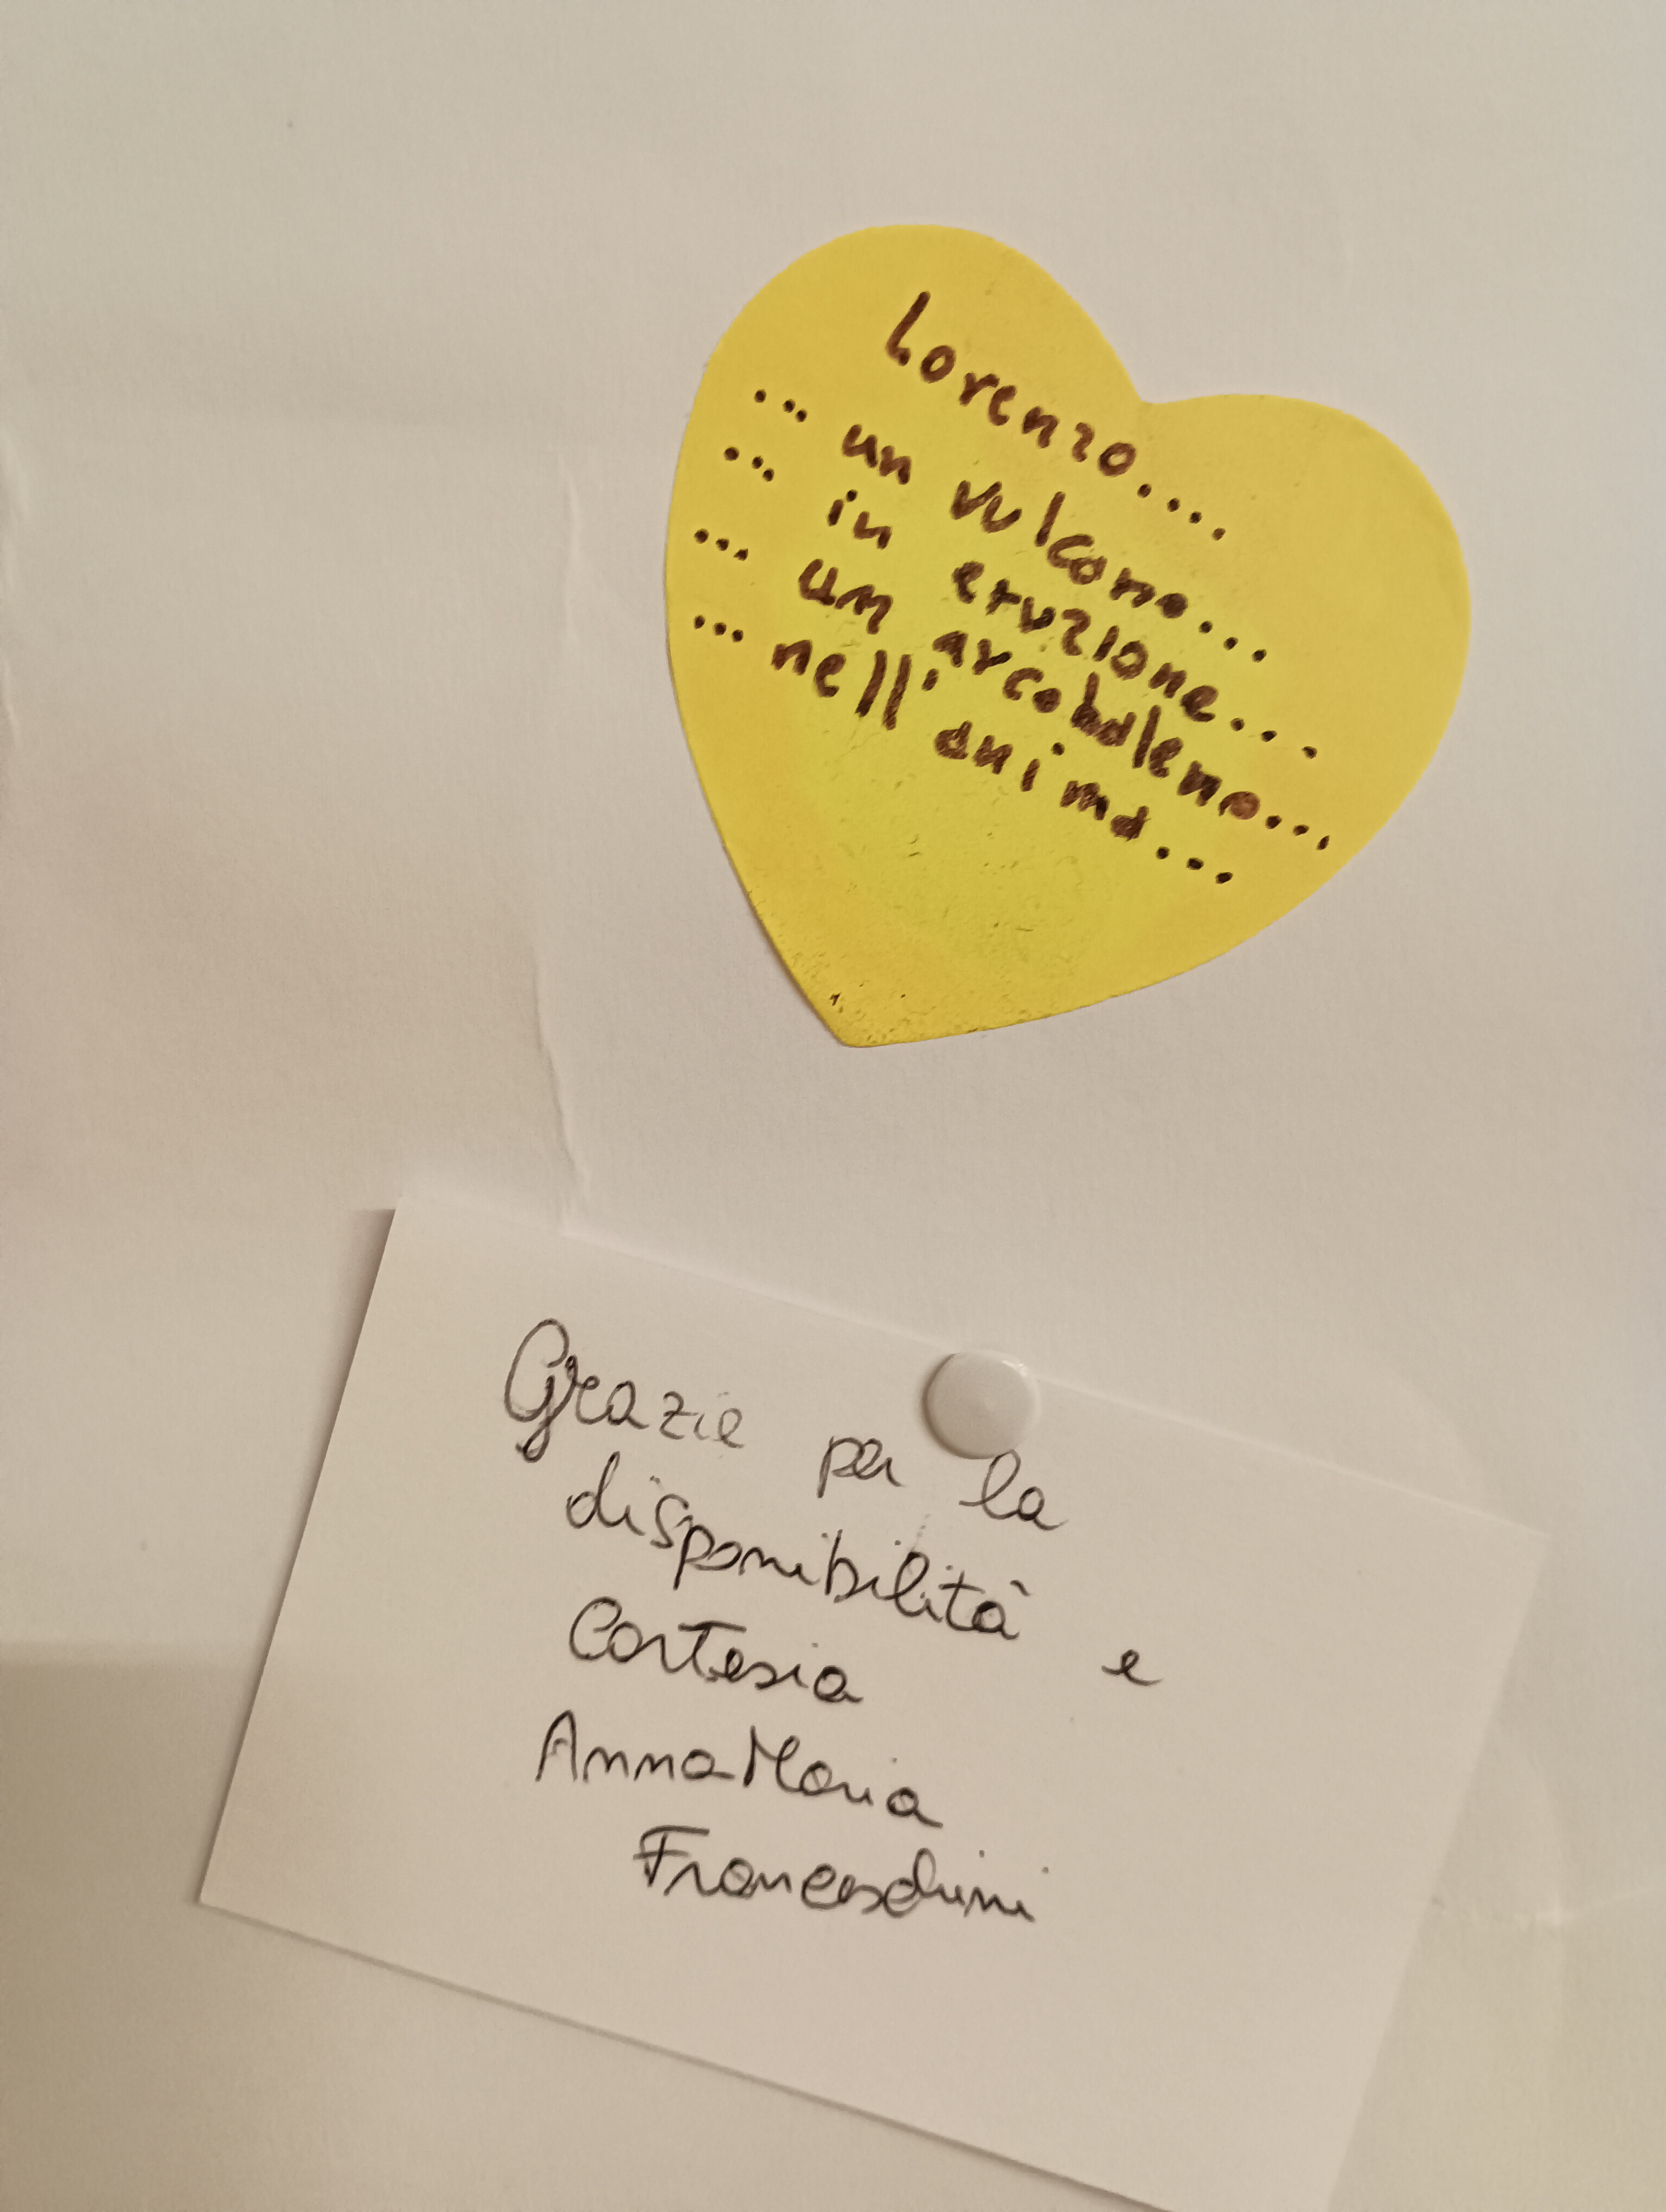 Lorenzo....
... un vulcano...
... in eruzione...
... un arcobaleno...
... nell'anima...
Grazie per la
disponibilità e
Cortesia
AnnaMaria
Franceschini